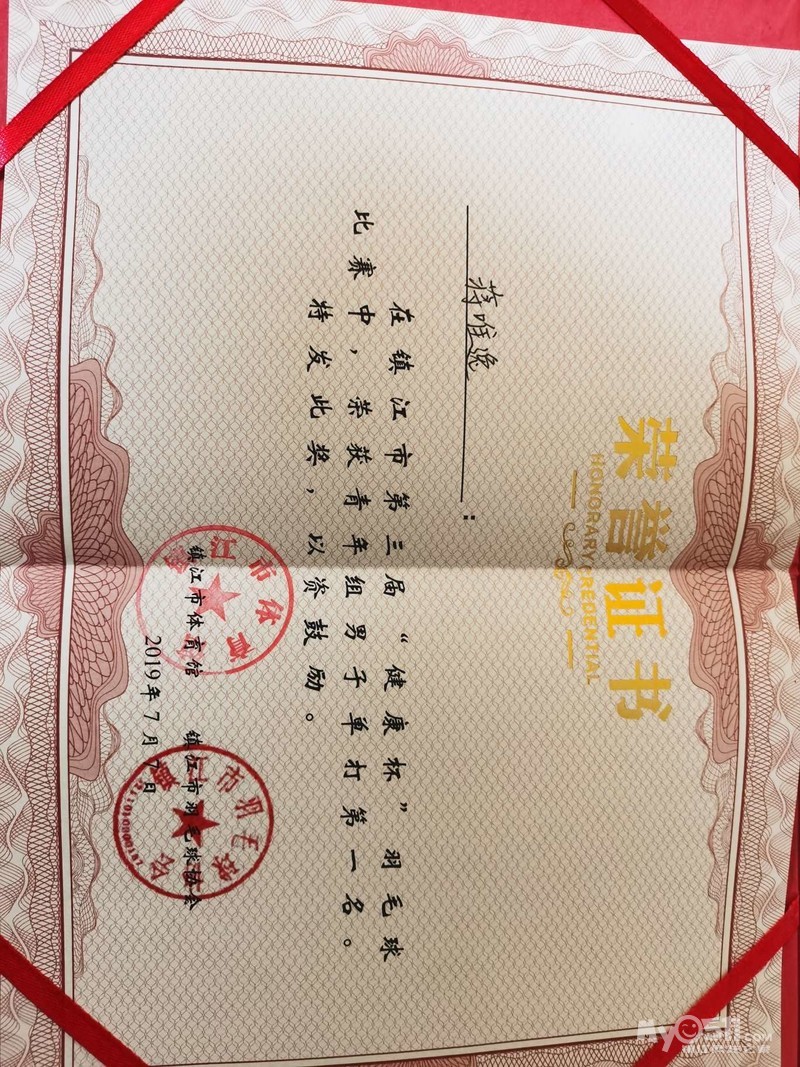 荣誉证书
HONORARY CREDENTIAL
蒋唯逸：
在镇江市第三届“健康杯”羽毛球
比赛中，荣获青年组男子单打第一名。
特发此奖，以资鼓励。
镇江市体育馆 镇江市羽毛球协会
2019年7月7日